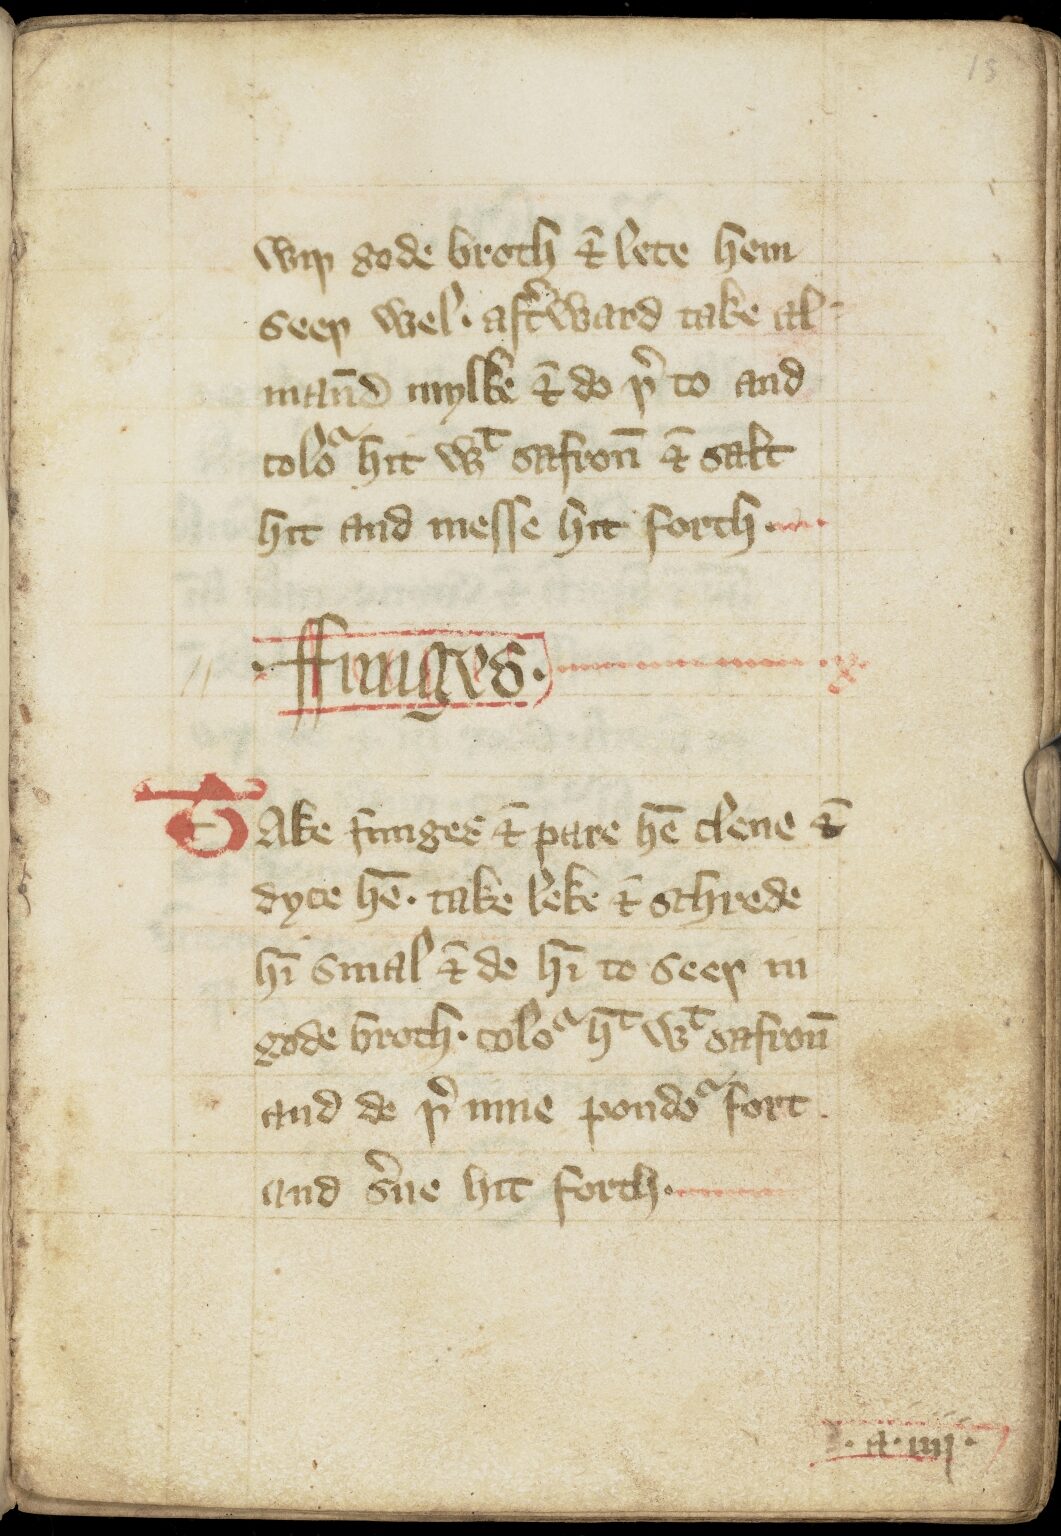 13
wiþ gode broth & lete hem
seeþ wel. aft̉ward take al=
man̄d mylke & do þ̉ to and
coloᷣ hit wᵗ safron̄ & salt
hit and messe hit forth.
.ffunges.
TAke funges & pare hē clene &
dyce hē. take leke & schrede
hī smal & do hī to seeþ in
gode broth. coloᷣ hᵗ wᵗ safron̄
and do þ̉ inne pondoᷣ fort
and s̉ue hit forth.
. a . iiij .